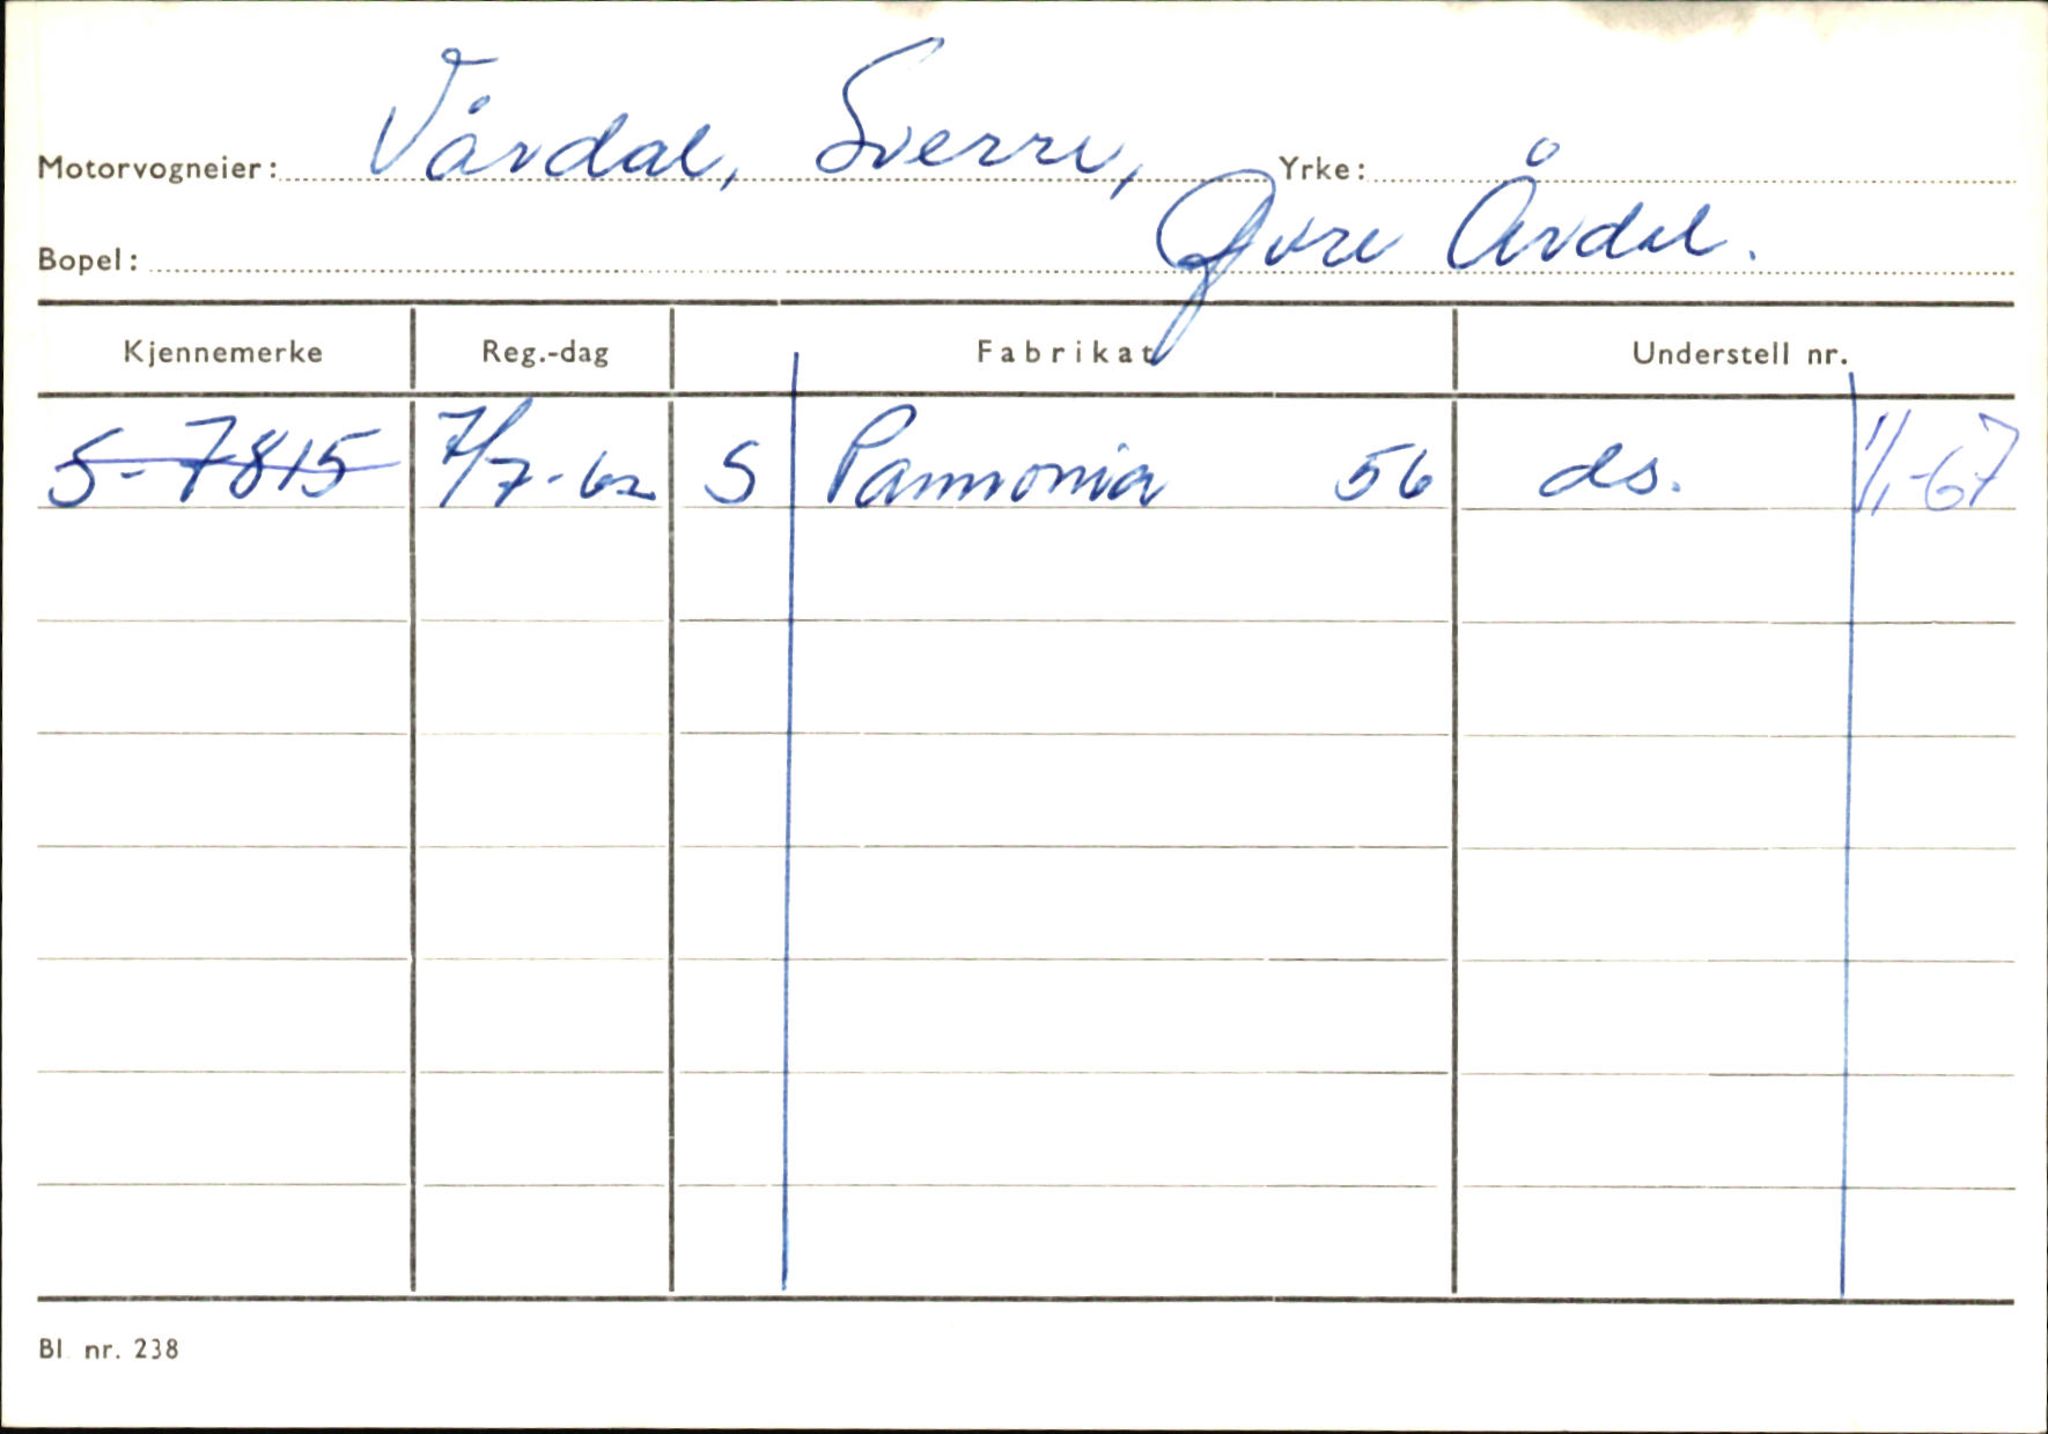 Motorvogneier: Vårdal, Sverre, Yrke:
Bopel: Øvre Årdal.
Kjennemerke Reg.-dag Fabrikat Understell nr.
S-7815 7/7-62 S Pannonia 56 ds. 1/1-67
Bl. nr. 238